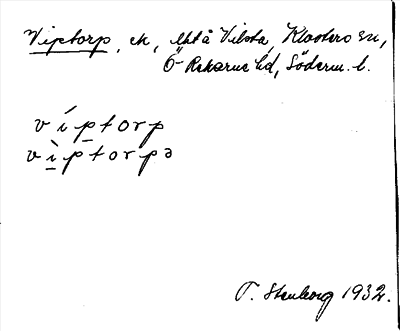 Viptorp, ek, Ektå Vilsta, Klosters sn,
Ö Rekarne hd, Söderm. l.
víptorp
vìptorpə
T. Stenborg 1932.